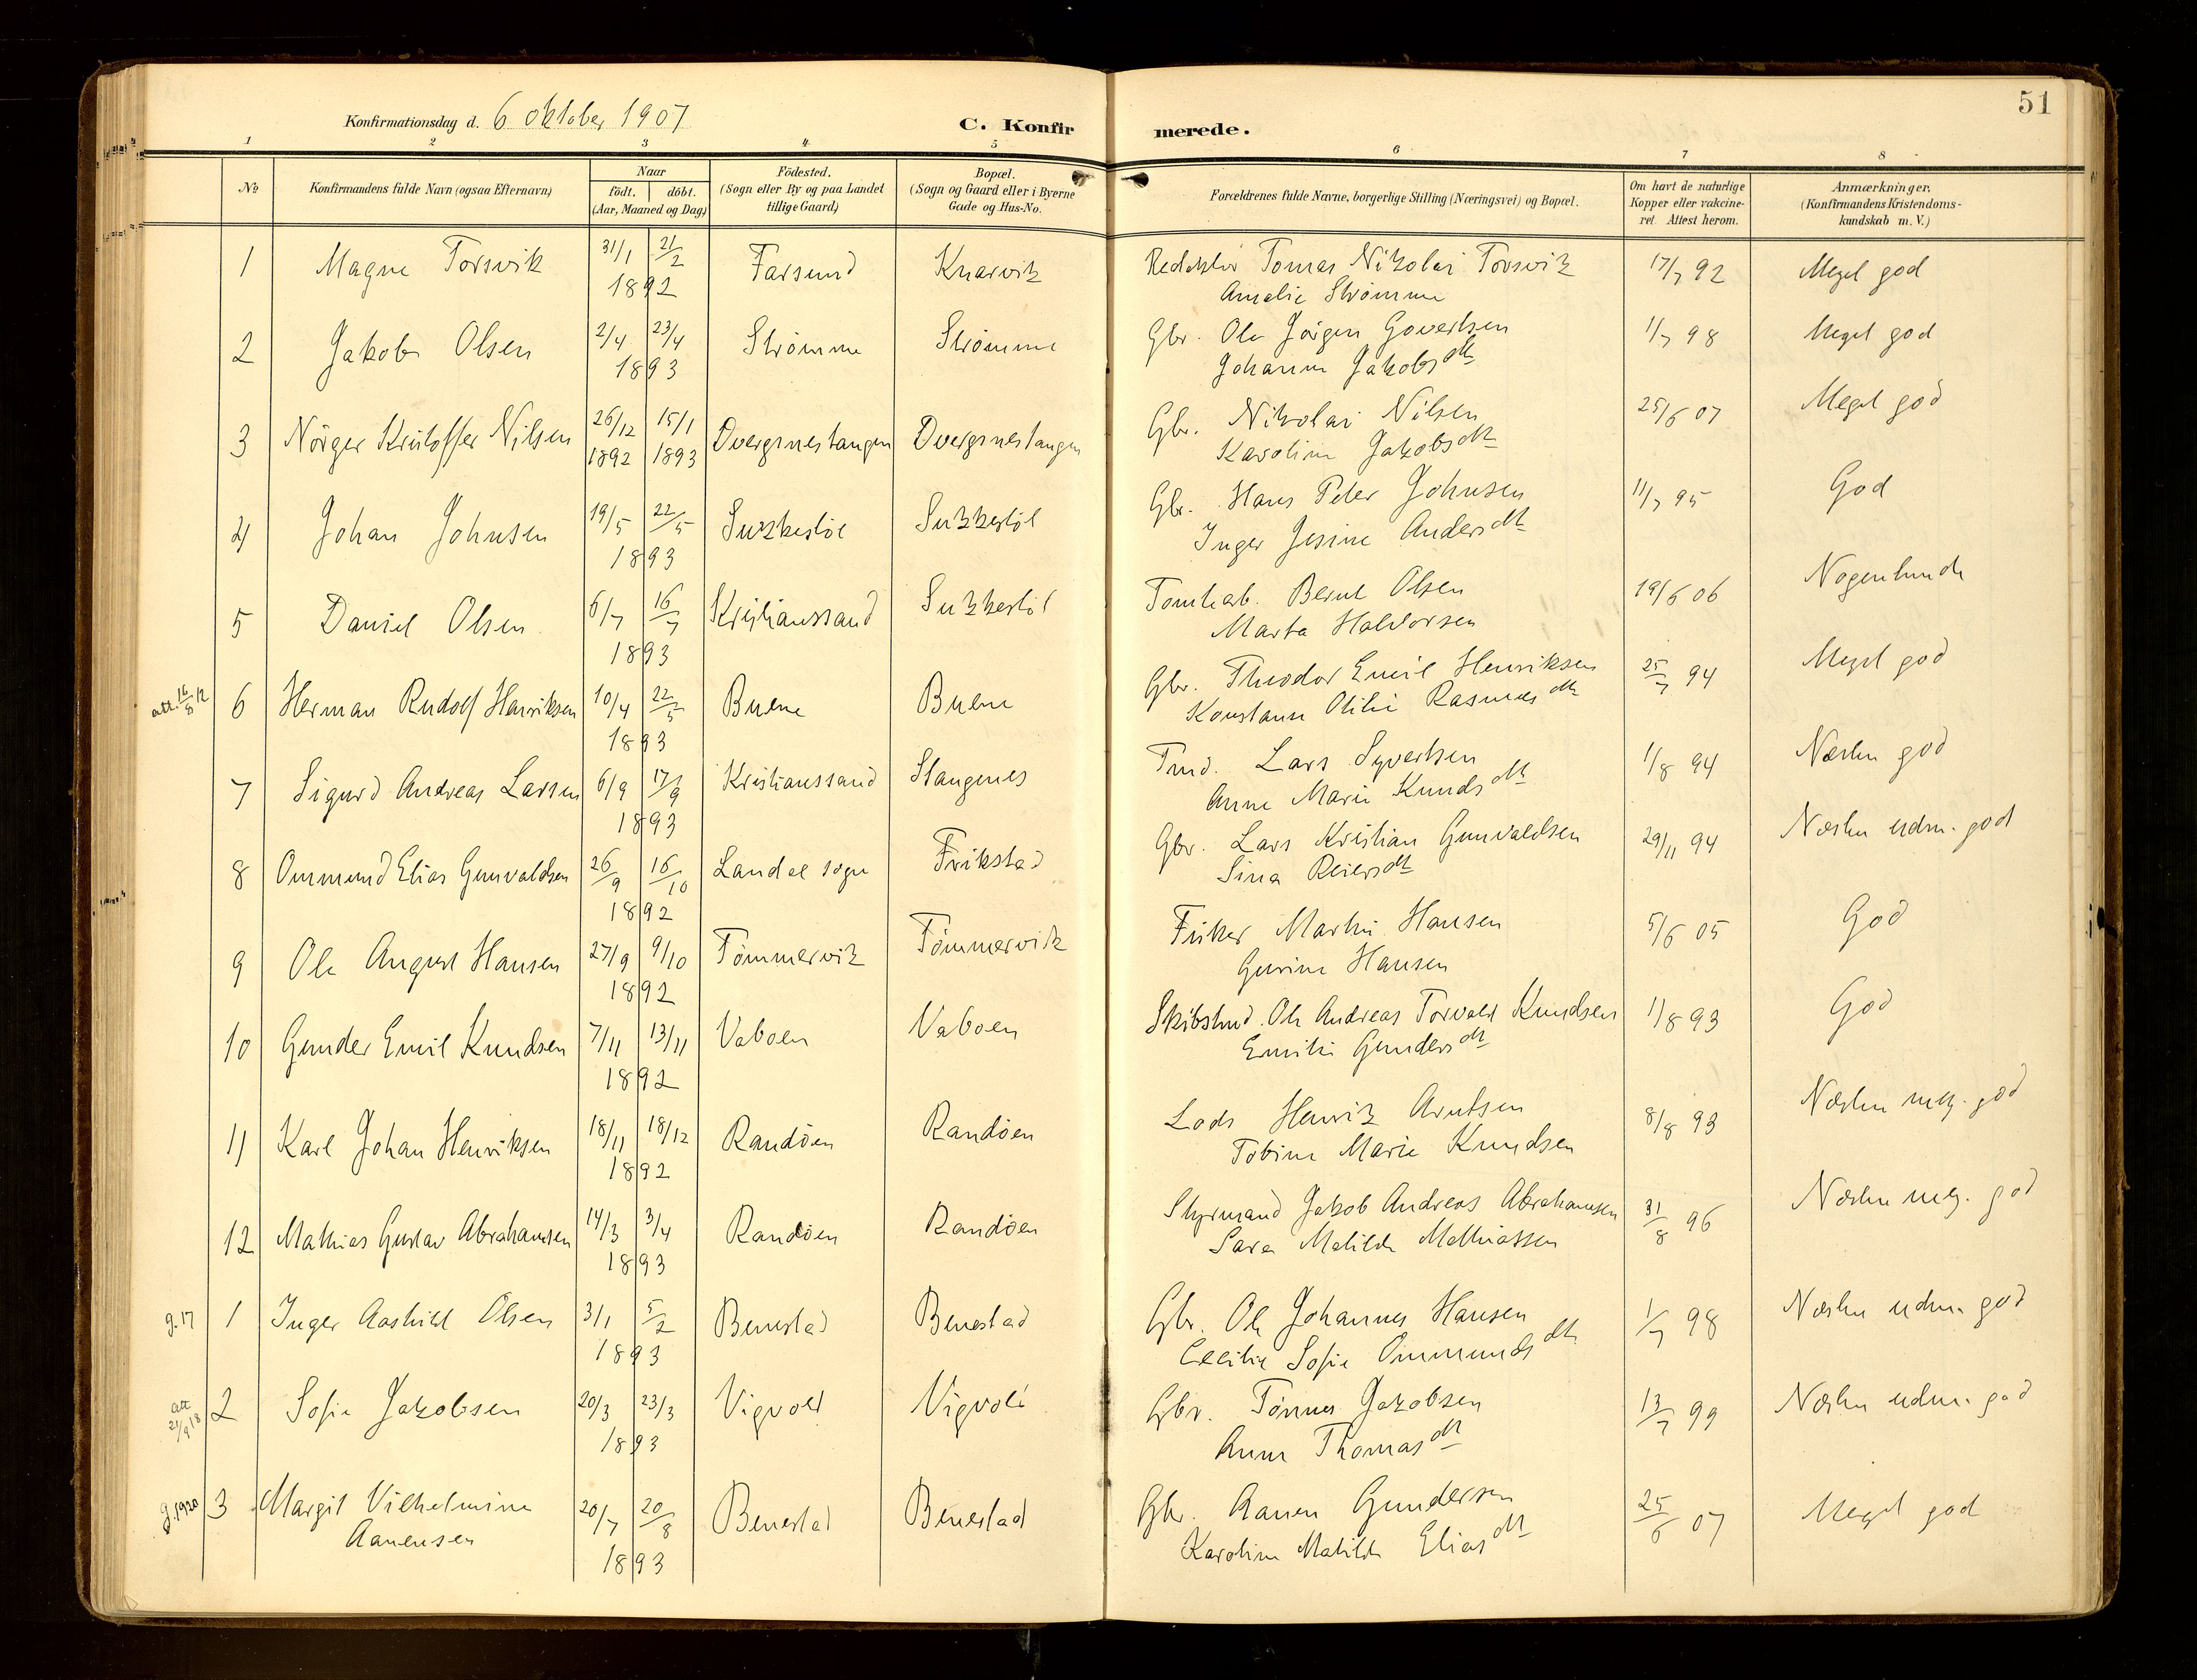 51
Konfirmationsdag d. 6 oktober 1907
C. Konfirmerede.
1 2 3 4 5 6 7 8
No Konfirmandens fulde Navn (ogsaa Efternavn) Naar födt. döbt. (Aar, Maaned og Dag) Födested. (Sogn eller By og paa Landet tillige Gaard) Bopæl. (Sogn og Gaard eller i Byerne Gade og Hus-No. Forældrenes fulde Navne, borgerlige Stilling (Næringsvei) og Bopæl. Om havt de naturlige Kopper eller vakcineret. Attest herom. Anmærkninger. (Konfirmandens Kristendomskundskab m. V.)
1 Magne Torsvik 31/1 21/2 Farsund Knarvik Redaktør Tomas Nikolai Torsvik 17/7 92 Meget god
1892 Amalie Strømme
2 Jakob Olsen 2/4 23/4 Strømme Strømme Gbr. Ole Jörgen Govertsen 1/7 98 Meget god
1893 Johanne Jakobsdt
3 Nörger Kristoffer Nilsen 26/12 15/1 Dvergsnestangen Dvergsnestangen Gbr. Nikolai Nilsen 25/6 07 Meget god
1892 1893 Karoline Jakobsdt
4 Johan Johnsen 19/5 22/5 Sukkestöl Sukkestöl Gbr. Hans Peter Johnsen 11/7 95 God
1893 Inger Jesine Andersdt
5 Daniel Olsen 6/7 16/7 Kristianssand Sukkestöl Tomtearb. Bernt Olsen 19/6 06 Nogenlunde
1893 Marta Halvorsen
att. 16/8 12 6 Herman Rudolf Henriksen 10/4 22/5 Buene Buene Gbr. Theodor Emil Henriksen 25/7 94 Meget god
1893 Konstanse Otilie Rasmusdt
7 Sigurd Andreas Larsen 6/9 17/9 Kristianssand Stangenes Tmd. Lars Syvertsen 1/8 94 Næsten god
1893 Anne Marie Knudsdt
8 Ommund Elias Gunvaldsen 26/9 16/10 Landal sogn Frikstad Gbr. Lars Kristian Gunvaldsen 29/11 94 Næsten udm. god
1892 Sina Reiersdt
9 Ole August Hansen 27/9 9/10 Tömmervik Tömmervik Fisker Martin Hansen 5/6 05 God
1892 Gurine Hansen
10 Gunder Emil Knudsen 7/11 13/11 Vaboen Vaboen Skibstmd. Ole Andreas Torvald Knudsen 1/8 93 God
1892 Emilie Gundersdt
11 Karl Johan Henriksen 18/11 18/12 Randöen Randöen Lods Henrik Arntsen 8/8 93 Næsten meg. god
1892 Tobine Marie Knudsen
12 Mathias Gustav Abrahamsen 14/3 3/4 Randöen Randöen Styrmand Jakob Andreas Abrahamsen 31/8 96 Næsten meg. god
1893 Sara Matilde Mathiassen
g. 17 1 Inger Aashild Olsen 3/1 5/2 Benestad Benestad Gbr. Ole Johannes Hansen 1/7 98 Næsten udm. god
1893 Cecilie Sofie Ommundsdt
att 21/9 18 2 Sofie Jakobsen 20/3 23/3 Vigvold Vigvold Gbr. Tönnes Jakobsen 13/7 99 Næsten udm. god
1893 Anne Thomasdt
g. 1920 3 Margit Vilhelmine 20/7 20/8 Benestad Benestad Gbr. Aanen Gundersen 25/6 07 Meget god
Aanensen 1893 Karoline Matilde Eliasdt